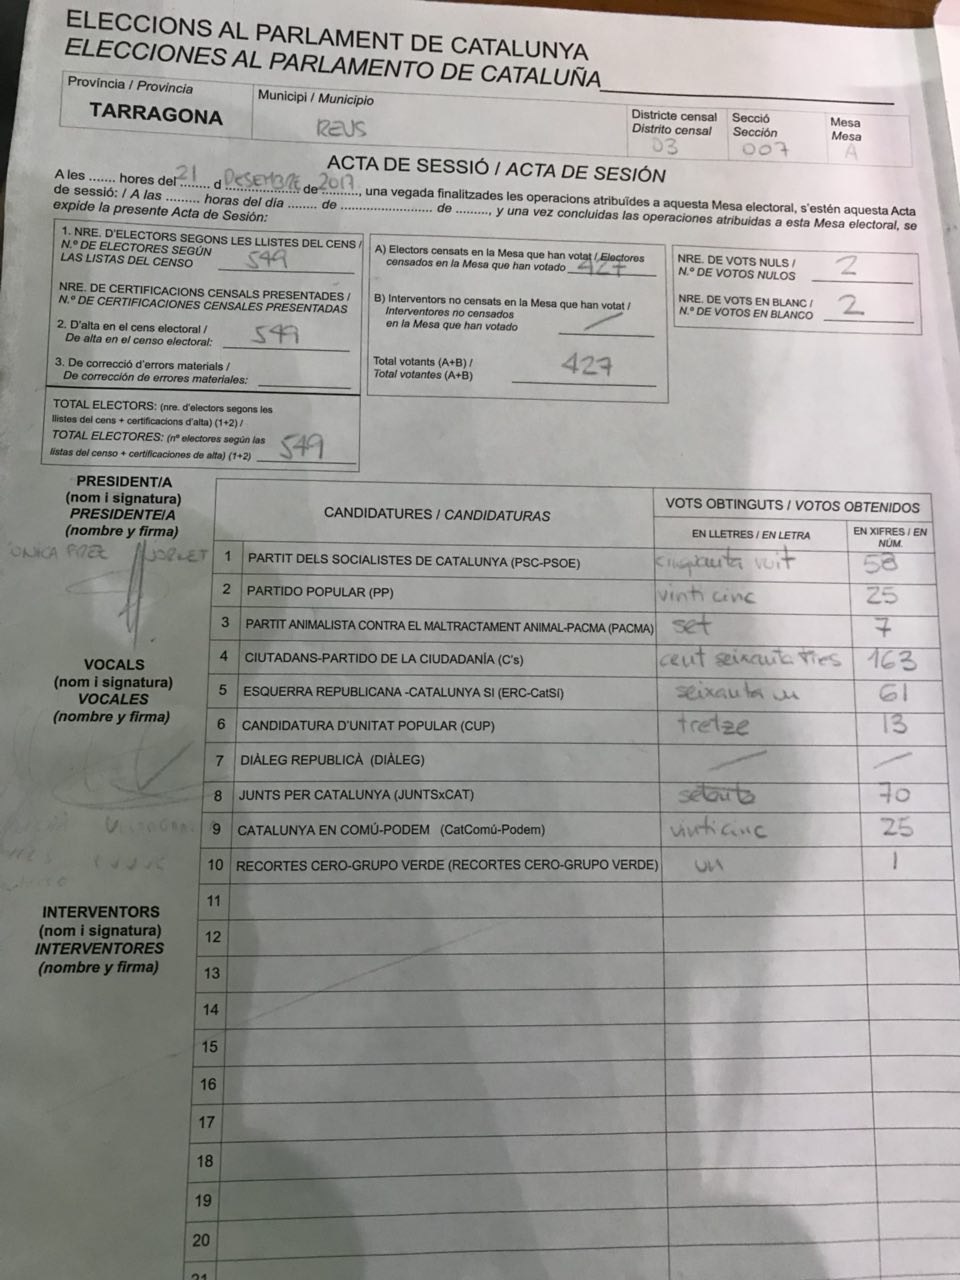 ELECCIONS AL PARLAMENT DE CATALUNYA
ELECCIONES AL PARLAMENTO DE CATALUÑA
Província / Provincia
TARRAGONA
Municipi / Municipio
REUS
Districte censal
Distrito censal
03
Secció
Sección
007
Mesa
Mesa
A
ACTA DE SESSIÓ / ACTA DE SESIÓN
A les ....... hores del 21 d DESEMBRE de 2017, una vegada finalitzades les operacions atribuïdes a aquesta Mesa electoral, s'estén aquesta Acta
de sessió: / A las ......... horas del día ....... de ........................ de ........., y una vez concluidas las operaciones atribuidas a esta Mesa electoral, se
expide la presente Acta de Sesión:
1. NRE. D'ELECTORS SEGONS LES LLISTES DEL CENS /
N.º DE ELECTORES SEGÚN
LAS LISTAS DEL CENSO 549
NRE. DE CERTIFICACIONS CENSALS PRESENTADES /
N.º DE CERTIFICACIONES CENSALES PRESENTADAS
2. D'alta en el cens electoral /
De alta en el censo electoral: 549
3. De correcció d'errors materials /
De corrección de errores materiales:
TOTAL ELECTORS: (nre. d'electors segons les
llistes del cens + certificacions d'alta) (1+2) /
TOTAL ELECTORES: (nº electores según las
listas del censo + certificaciones de alta) (1+2) 549
A) Electors censats en la Mesa que han votat / Electores
censados en la Mesa que han votado 427
B) Interventors no censats en la Mesa que han votat /
Interventores no censados
en la Mesa que han votado
Total votants (A+B) /
Total votantes (A+B) 427
NRE. DE VOTS NULS /
N.º DE VOTOS NULOS 2
NRE. DE VOTS EN BLANC /
N.º DE VOTOS EN BLANCO 2
PRESIDENT/A
(nom i signatura)
PRESIDENTE/A
(nombre y firma)
VOCALS
(nom i signatura)
VOCALES
(nombre y firma)
INTERVENTORS
(nom i signatura)
INTERVENTORES
(nombre y firma)
CANDIDATURES / CANDIDATURAS
VOTS OBTINGUTS / VOTOS OBTENIDOS
EN LLETRES / EN LETRA
EN XIFRES / EN
NÚM.
1 PARTIT DELS SOCIALISTES DE CATALUNYA (PSC-PSOE) cinquanta vuit 58
2 PARTIDO POPULAR (PP) vinti cinc 25
3 PARTIT ANIMALISTA CONTRA EL MALTRACTAMENT ANIMAL-PACMA (PACMA) set 7
4 CIUTADANS-PARTIDO DE LA CIUDADANÍA (C's) cent seixanta tres 163
5 ESQUERRA REPUBLICANA -CATALUNYA SI (ERC-CatSí) seixanta u 61
6 CANDIDATURA D'UNITAT POPULAR (CUP) tretze 13
7 DIÀLEG REPUBLICÀ (DIÀLEG)
8 JUNTS PER CATALUNYA (JUNTSxCAT) setanta 70
9 CATALUNYA EN COMÚ-PODEM (CatComú-Podem) vinticinc 25
10 RECORTES CERO-GRUPO VERDE (RECORTES CERO-GRUPO VERDE) un 1
11
12
13
14
15
16
17
18
19
20
21